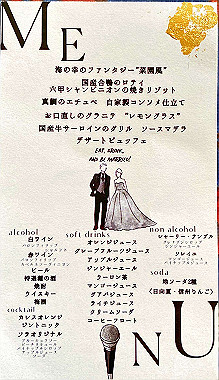 ME
海の幸のファンタジー"菜園風"
国産合鴨のロティ
六甲シャンピニオンの焼きリゾット
真鯛のエチュベ 自家製コンソメ仕立て
お口直しのグラニテ "レモングラス"
国産牛サーロインのグリル ソースマデラ
デザートビュッフェ
EAT, DRINK,
AND BE MARRIED!
alcohol
白ワイン
赤ワイン
ビール
焼酎
ウイスキー
梅酒
cocktail
カシスオレンジ
ジントニック
ソラオリジナル
soft drinks
オレンジジュース
グレープフルーツジュース
アップルジュース
ジンジャーエール
ウーロン茶
マンゴージュース
グアバジュース
ライチジュース
クリームソーダ
コーヒーフロート
non alcohol
シャーリー・テンプル
ソレイル
soda
地ソーダ2種
〈日向夏・信州りんご〉
NU